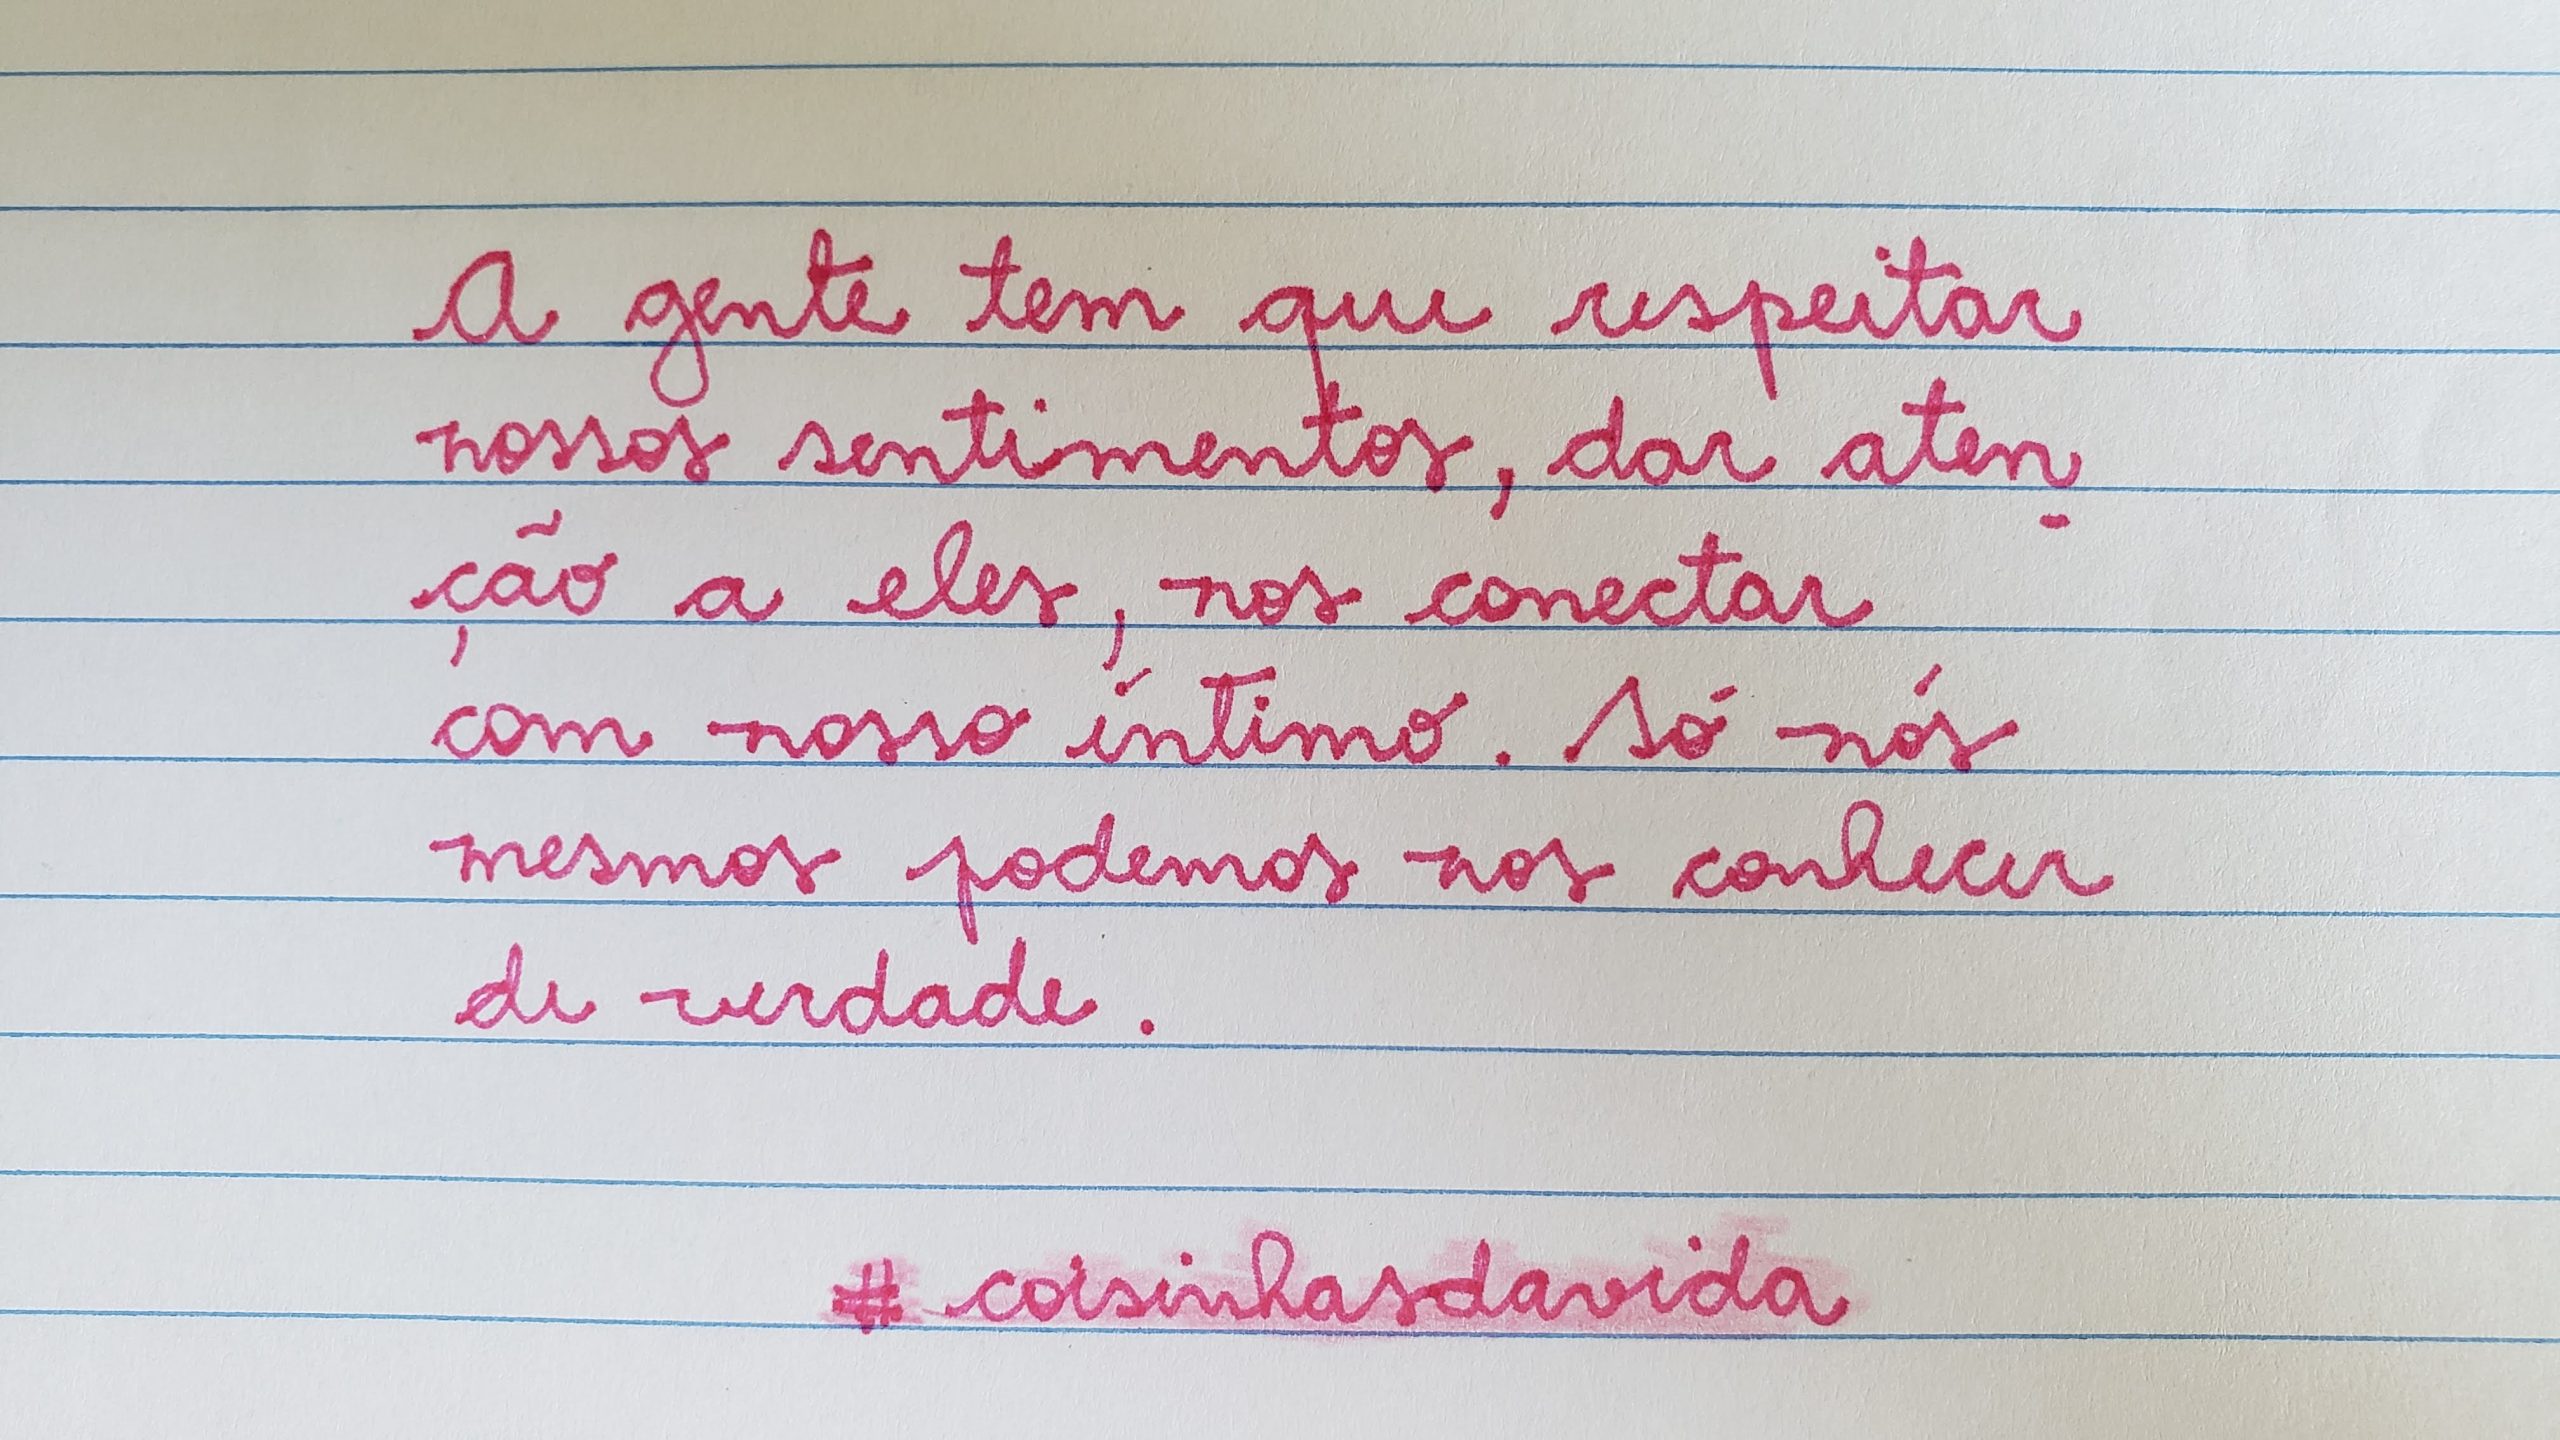 A gente tem que respeitar
nossos sentimentos, dar aten-
ção a eles, nos conectar
com nosso íntimo. Só nós
mesmos podemos nos conhecer
de verdade.
# coisinhasdavida